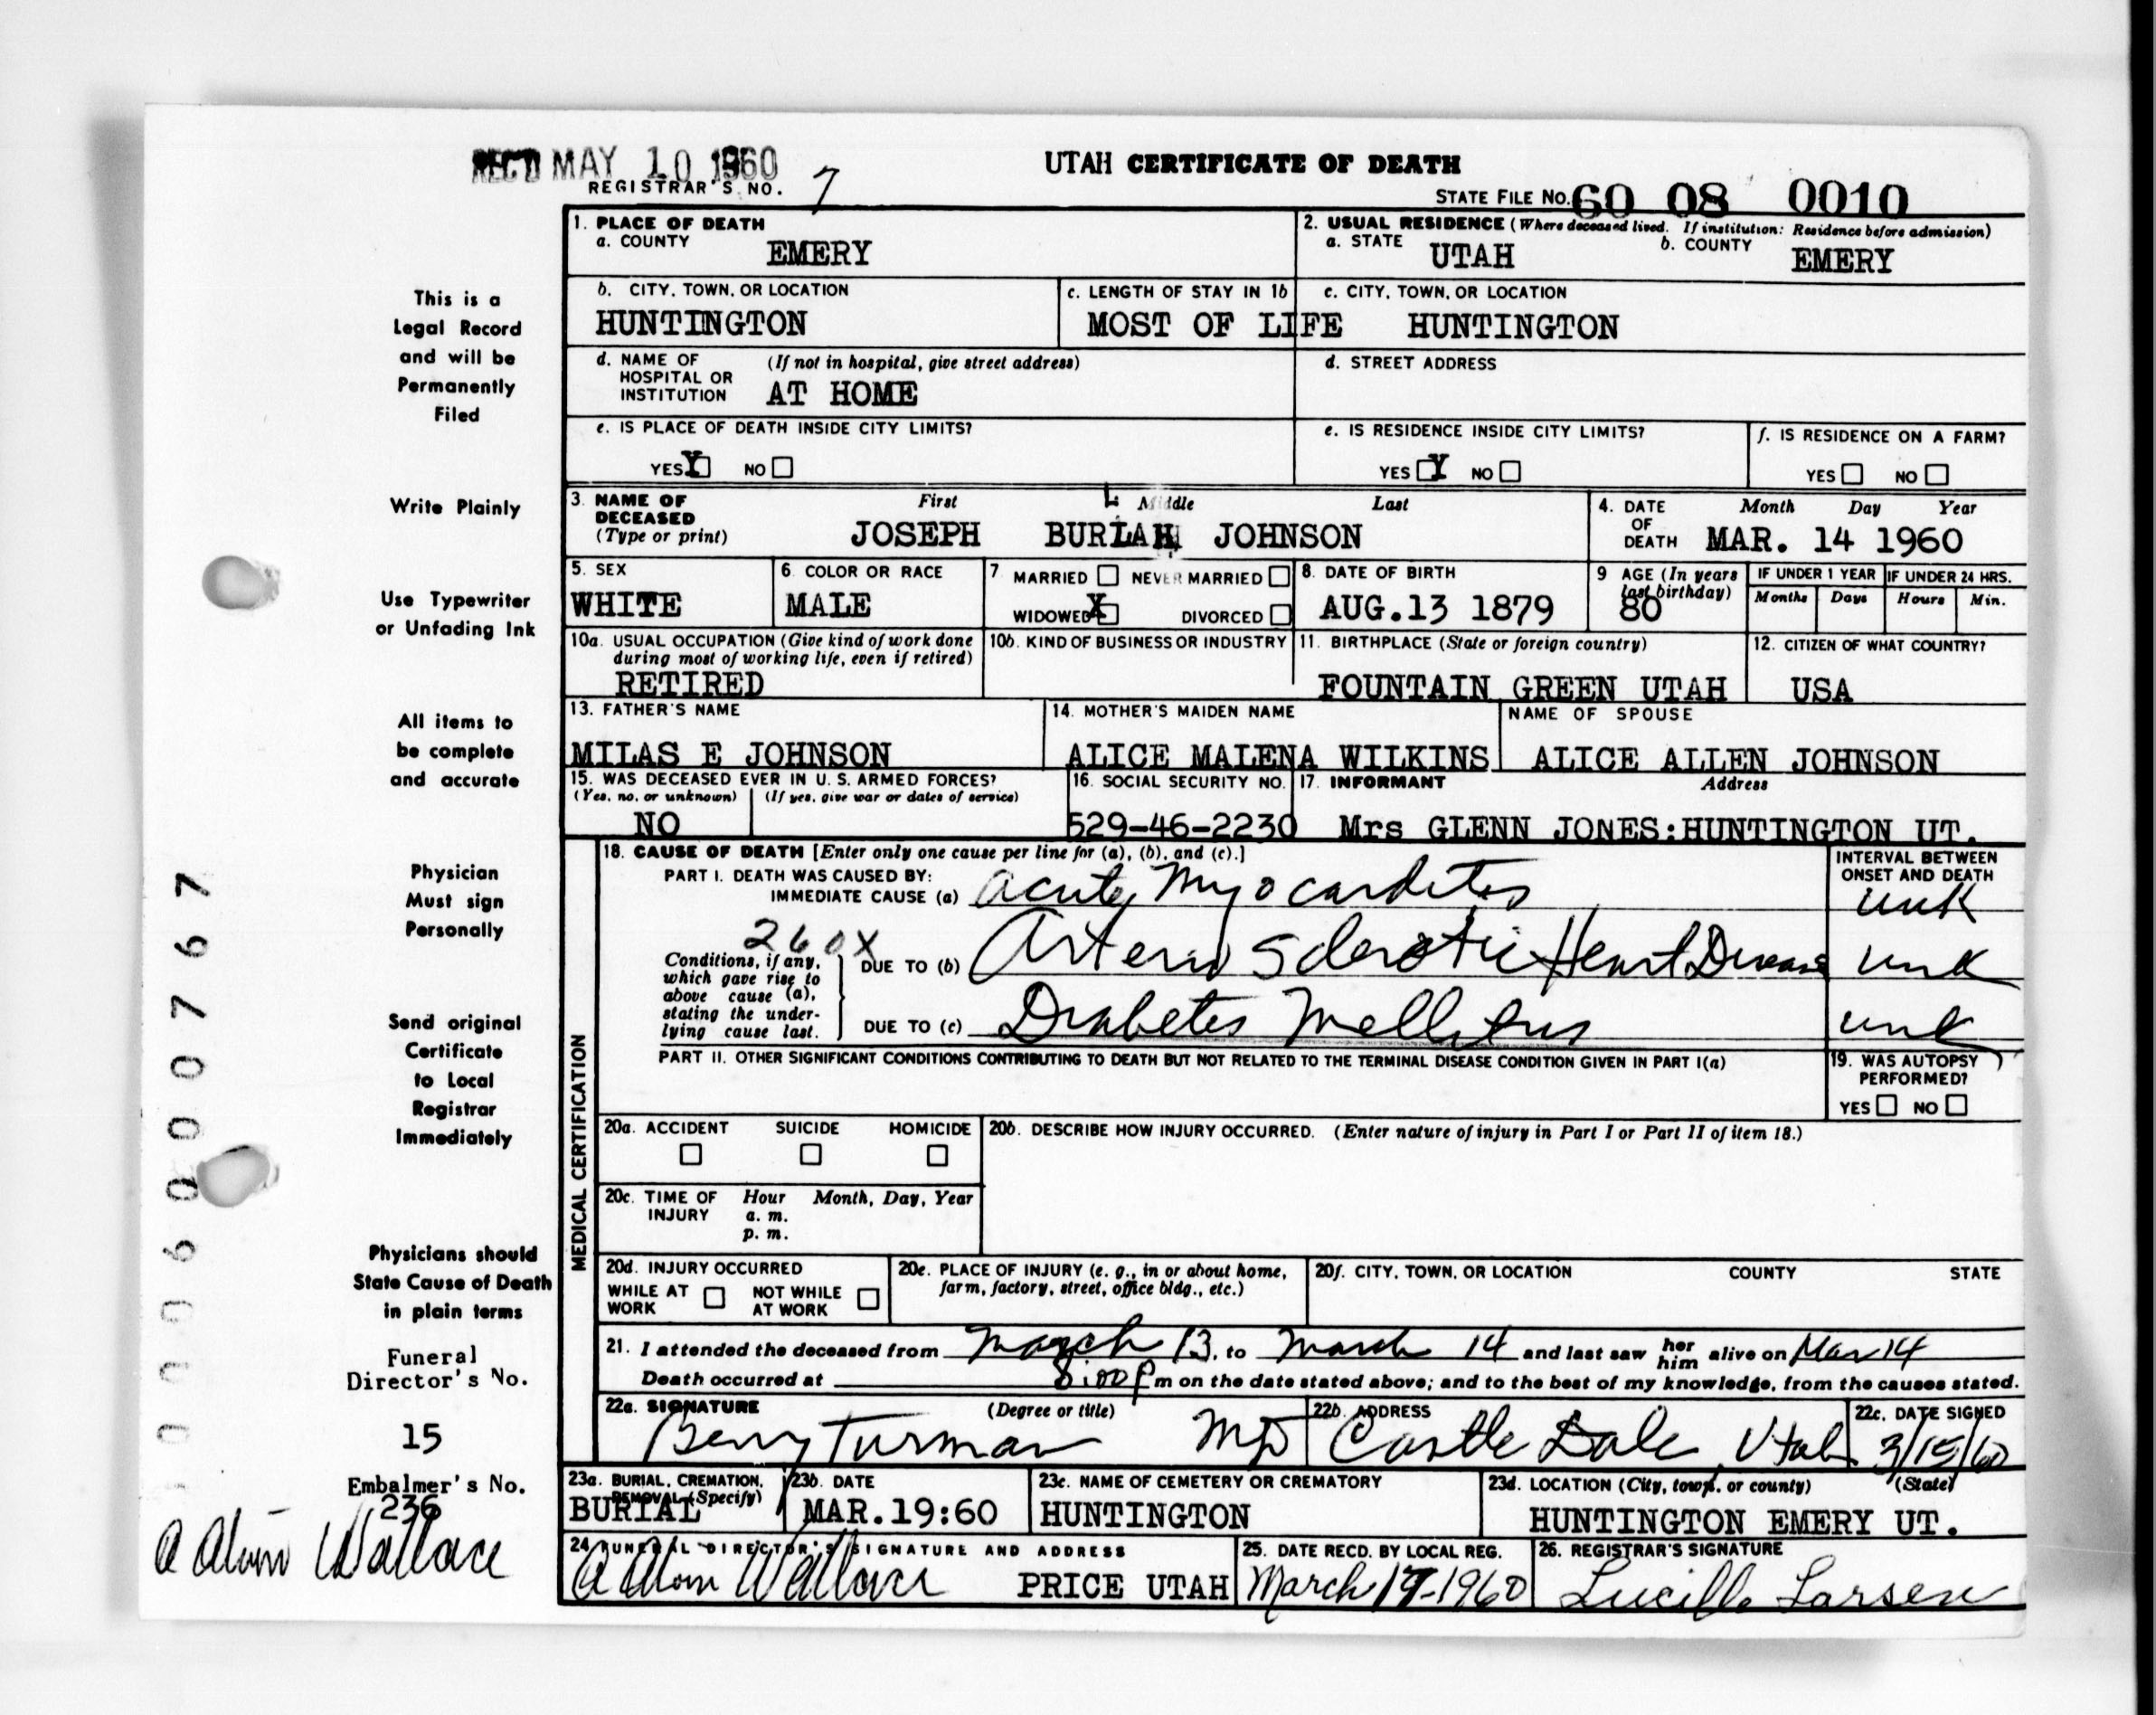 REC'D MAY 10 1960
UTAH CERTIFICATE OF DEATH
REGISTRAR'S NO. 7
STATE FILE NO. 60 08 0010
1. PLACE OF DEATH
a. COUNTY EMERY
2. USUAL RESIDENCE (Where deceased lived. If institution: Residence before admission)
a. STATE UTAH b. COUNTY EMERY
b. CITY, TOWN, OR LOCATION
HUNTINGTON
c. LENGTH OF STAY IN 1b
MOST OF LIFE
c. CITY, TOWN, OR LOCATION
HUNTINGTON
d. NAME OF HOSPITAL OR INSTITUTION (If not in hospital, give street address)
AT HOME
d. STREET ADDRESS
e. IS PLACE OF DEATH INSIDE CITY LIMITS?
YES X NO
e. IS RESIDENCE INSIDE CITY LIMITS?
YES X NO
f. IS RESIDENCE ON A FARM?
YES NO
3. NAME OF DECEASED (Type or print)
First Middle Last
JOSEPH JOHNSON
4. DATE OF DEATH Month Day Year
MAR. 14 1960
5. SEX
WHITE
6. COLOR OR RACE
MALE
7 MARRIED NEVER MARRIED
WIDOWED X DIVORCED
8. DATE OF BIRTH
AUG.13 1879
9 AGE (In years last birthday)
80
IF UNDER 1 YEAR
Months Days
IF UNDER 24 HRS.
Hours Min.
10a. USUAL OCCUPATION (Give kind of work done during most of working life, even if retired)
RETIRED
10b. KIND OF BUSINESS OR INDUSTRY
11. BIRTHPLACE (State or foreign country)
FOUNTAIN GREEN UTAH
12. CITIZEN OF WHAT COUNTRY?
USA
13. FATHER'S NAME
MILAS E JOHNSON
14. MOTHER'S MAIDEN NAME
ALICE MALENA WILKINS
NAME OF SPOUSE
ALICE ALLEN JOHNSON
15. WAS DECEASED EVER IN U. S. ARMED FORCES?
(Yes, no, or unknown) (If yes, give war or dates of service)
NO
16. SOCIAL SECURITY NO.
529-46-2230
17. INFORMANT Address
Mrs GLENN JONES:HUNTINGTON UT.
MEDICAL CERTIFICATION
18. CAUSE OF DEATH [Enter only one cause per line for (a), (b), and (c).]
INTERVAL BETWEEN ONSET AND DEATH
PART I. DEATH WAS CAUSED BY:
IMMEDIATE CAUSE (a) Acute Myocarditis unk
260X
Conditions, if any, which gave rise to above cause (a), stating the underlying cause last.
DUE TO (b) Arterio Sclerotic Heart Disease unk
DUE TO (c) Diabetes Mellitus unk
PART II. OTHER SIGNIFICANT CONDITIONS CONTRIBUTING TO DEATH BUT NOT RELATED TO THE TERMINAL DISEASE CONDITION GIVEN IN PART I(a)
19. WAS AUTOPSY PERFORMED?
YES NO
20a. ACCIDENT SUICIDE HOMICIDE
20b. DESCRIBE HOW INJURY OCCURRED. (Enter nature of injury in Part I or Part II of item 18.)
20c. TIME OF INJURY Hour Month, Day, Year
a. m.
p. m.
20d. INJURY OCCURRED
WHILE AT WORK NOT WHILE AT WORK
20e. PLACE OF INJURY (e. g., in or about home, farm, factory, street, office bldg., etc.)
20f. CITY, TOWN, OR LOCATION COUNTY STATE
21. I attended the deceased from March 13, to March 14 and last saw her him alive on Mar 14
Death occurred at 8:00 p m on the date stated above; and to the best of my knowledge, from the causes stated.
22a. SIGNATURE (Degree or title)
Turman MD
22b. ADDRESS
Castle Dale, Utah
22c. DATE SIGNED
3/15/60
23a. BURIAL, CREMATION, REMOVAL (Specify)
BURIAL
23b. DATE
MAR.19:60
23c. NAME OF CEMETERY OR CREMATORY
HUNTINGTON
23d. LOCATION (City, town, or county) (State)
HUNTINGTON EMERY UT.
24 FUNERAL DIRECTOR'S SIGNATURE AND ADDRESS
Wallace PRICE UTAH
25. DATE RECD. BY LOCAL REG.
March 19-1960
26. REGISTRAR'S SIGNATURE
Lucille Larsen
This is a
Legal Record
and will be
Permanently
Filed
Write Plainly
Use Typewriter
or Unfading Ink
All items to
be complete
and accurate
Physician
Must sign
Personally
Send original
Certificate
to Local
Registrar
Immediately
Physicians should
State Cause of Death
in plain terms
Funeral
Director's No.
15
Embalmer's No.
236
Wallace